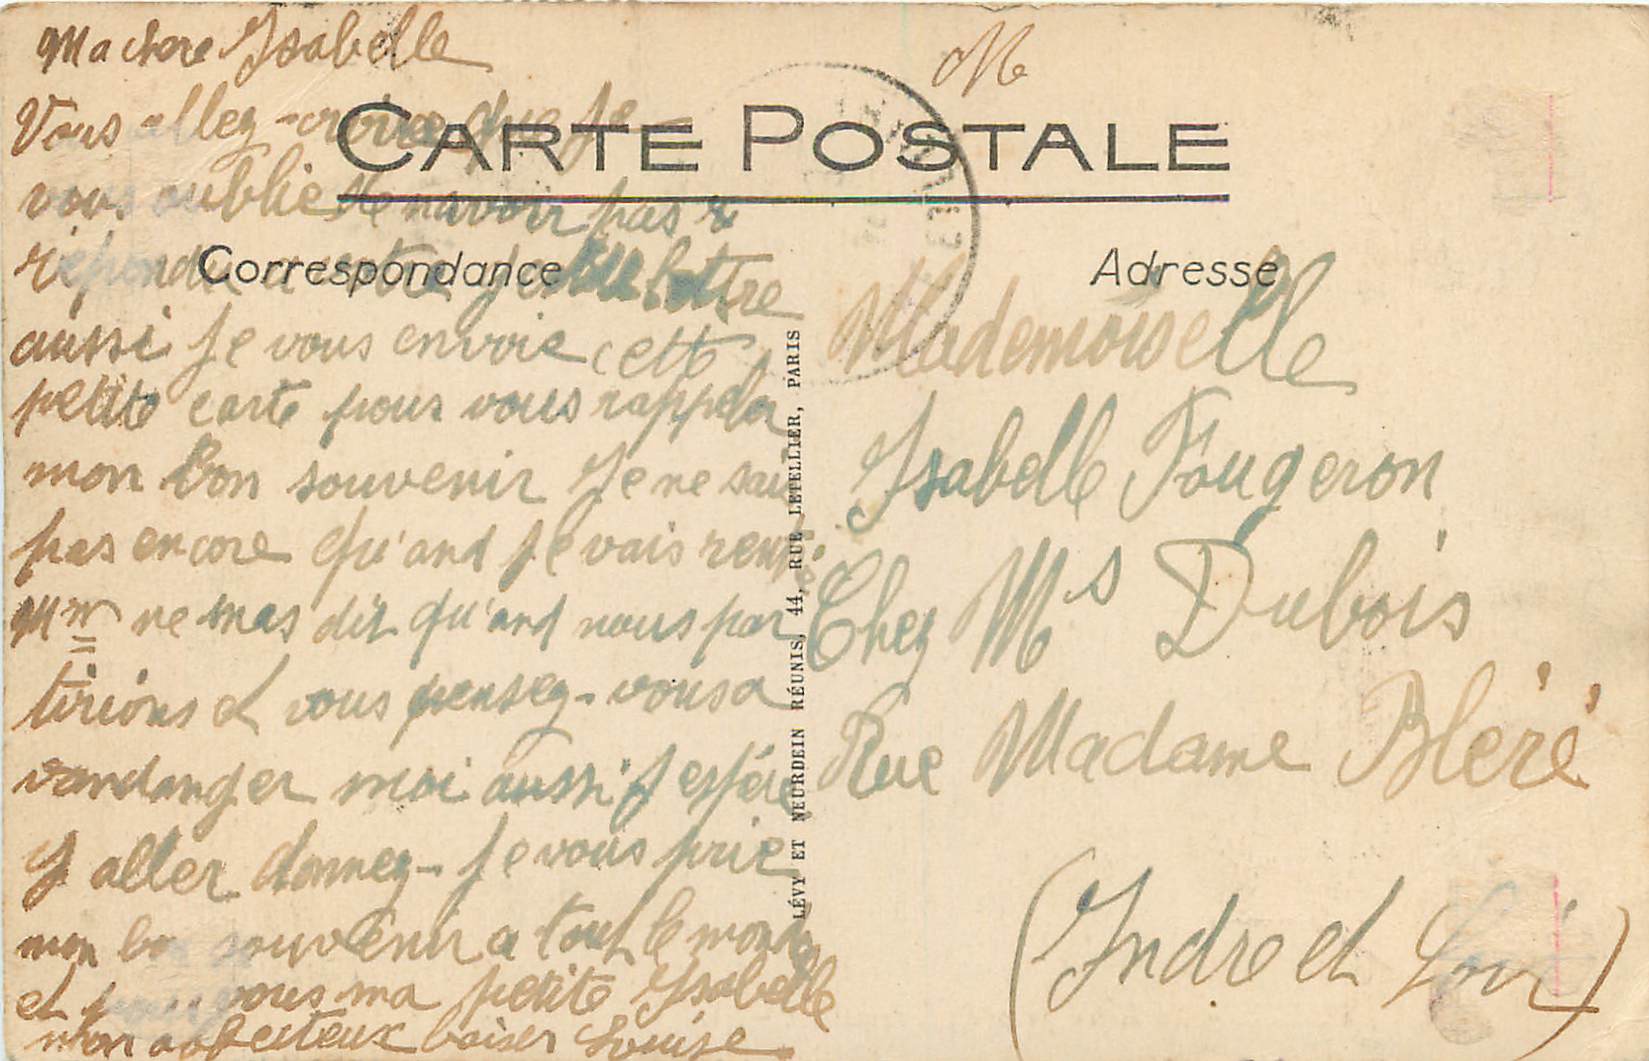 Ma chere Isabelle
Vous allez-croire que je
vous oublie de navoir pas
répondu a votre gentille lettre
aussi je vous envoie cette
petite carte pour vous rappeler
mon bon souvenir Je ne sais
pas encore qu'and je vais
Mm ne mas dit qu'and nous par
tirions et vous pensez-vous a
vandanger moi aussi j espère
y aller donnez-je vous prie
mon bon souvenir a tout le monde
et pour vous ma petite Isabelle
mon affecteux baiser Louise
M
CARTE POSTALE
Correspondance
Adresse
LÉVY ET NEURDEIN RÉUNIS, 44, RUE LETELLIER, PARIS
Mademoiselle
Isabelle Fougeron
Chez Ms Dubois
Rue Madame Bléré
(Indre et Loir)